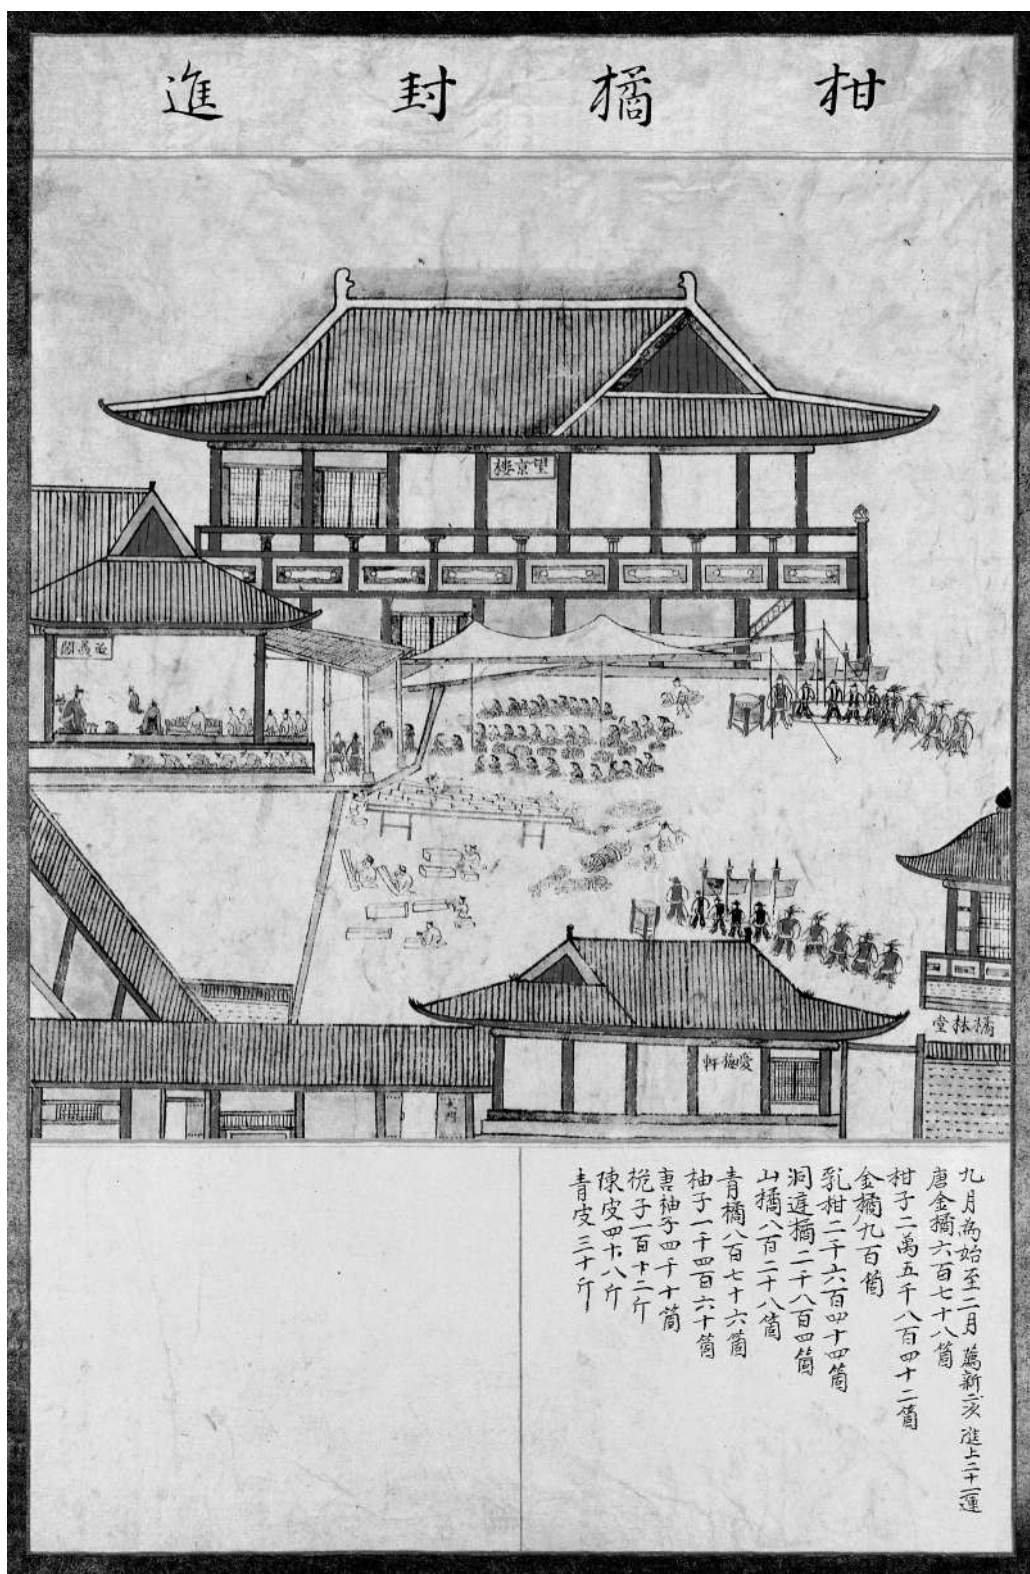 柑橘封進
望京樓
閣
橘林堂
愛梅軒
大門
九月為始至二月 薦新二次 進上二十一運
唐金橘六百七十八箇
柑子二萬五千八百四十二箇
金橘九百箇
乳柑二千六百四十四箇
洞庭橘二千八百四箇
山橘八百二十八箇
青橘八百七十六箇
柚子一千四百六十箇
唐柚子四千十箇
枙子一百十二斤
陳皮四十八斤
青皮三十斤